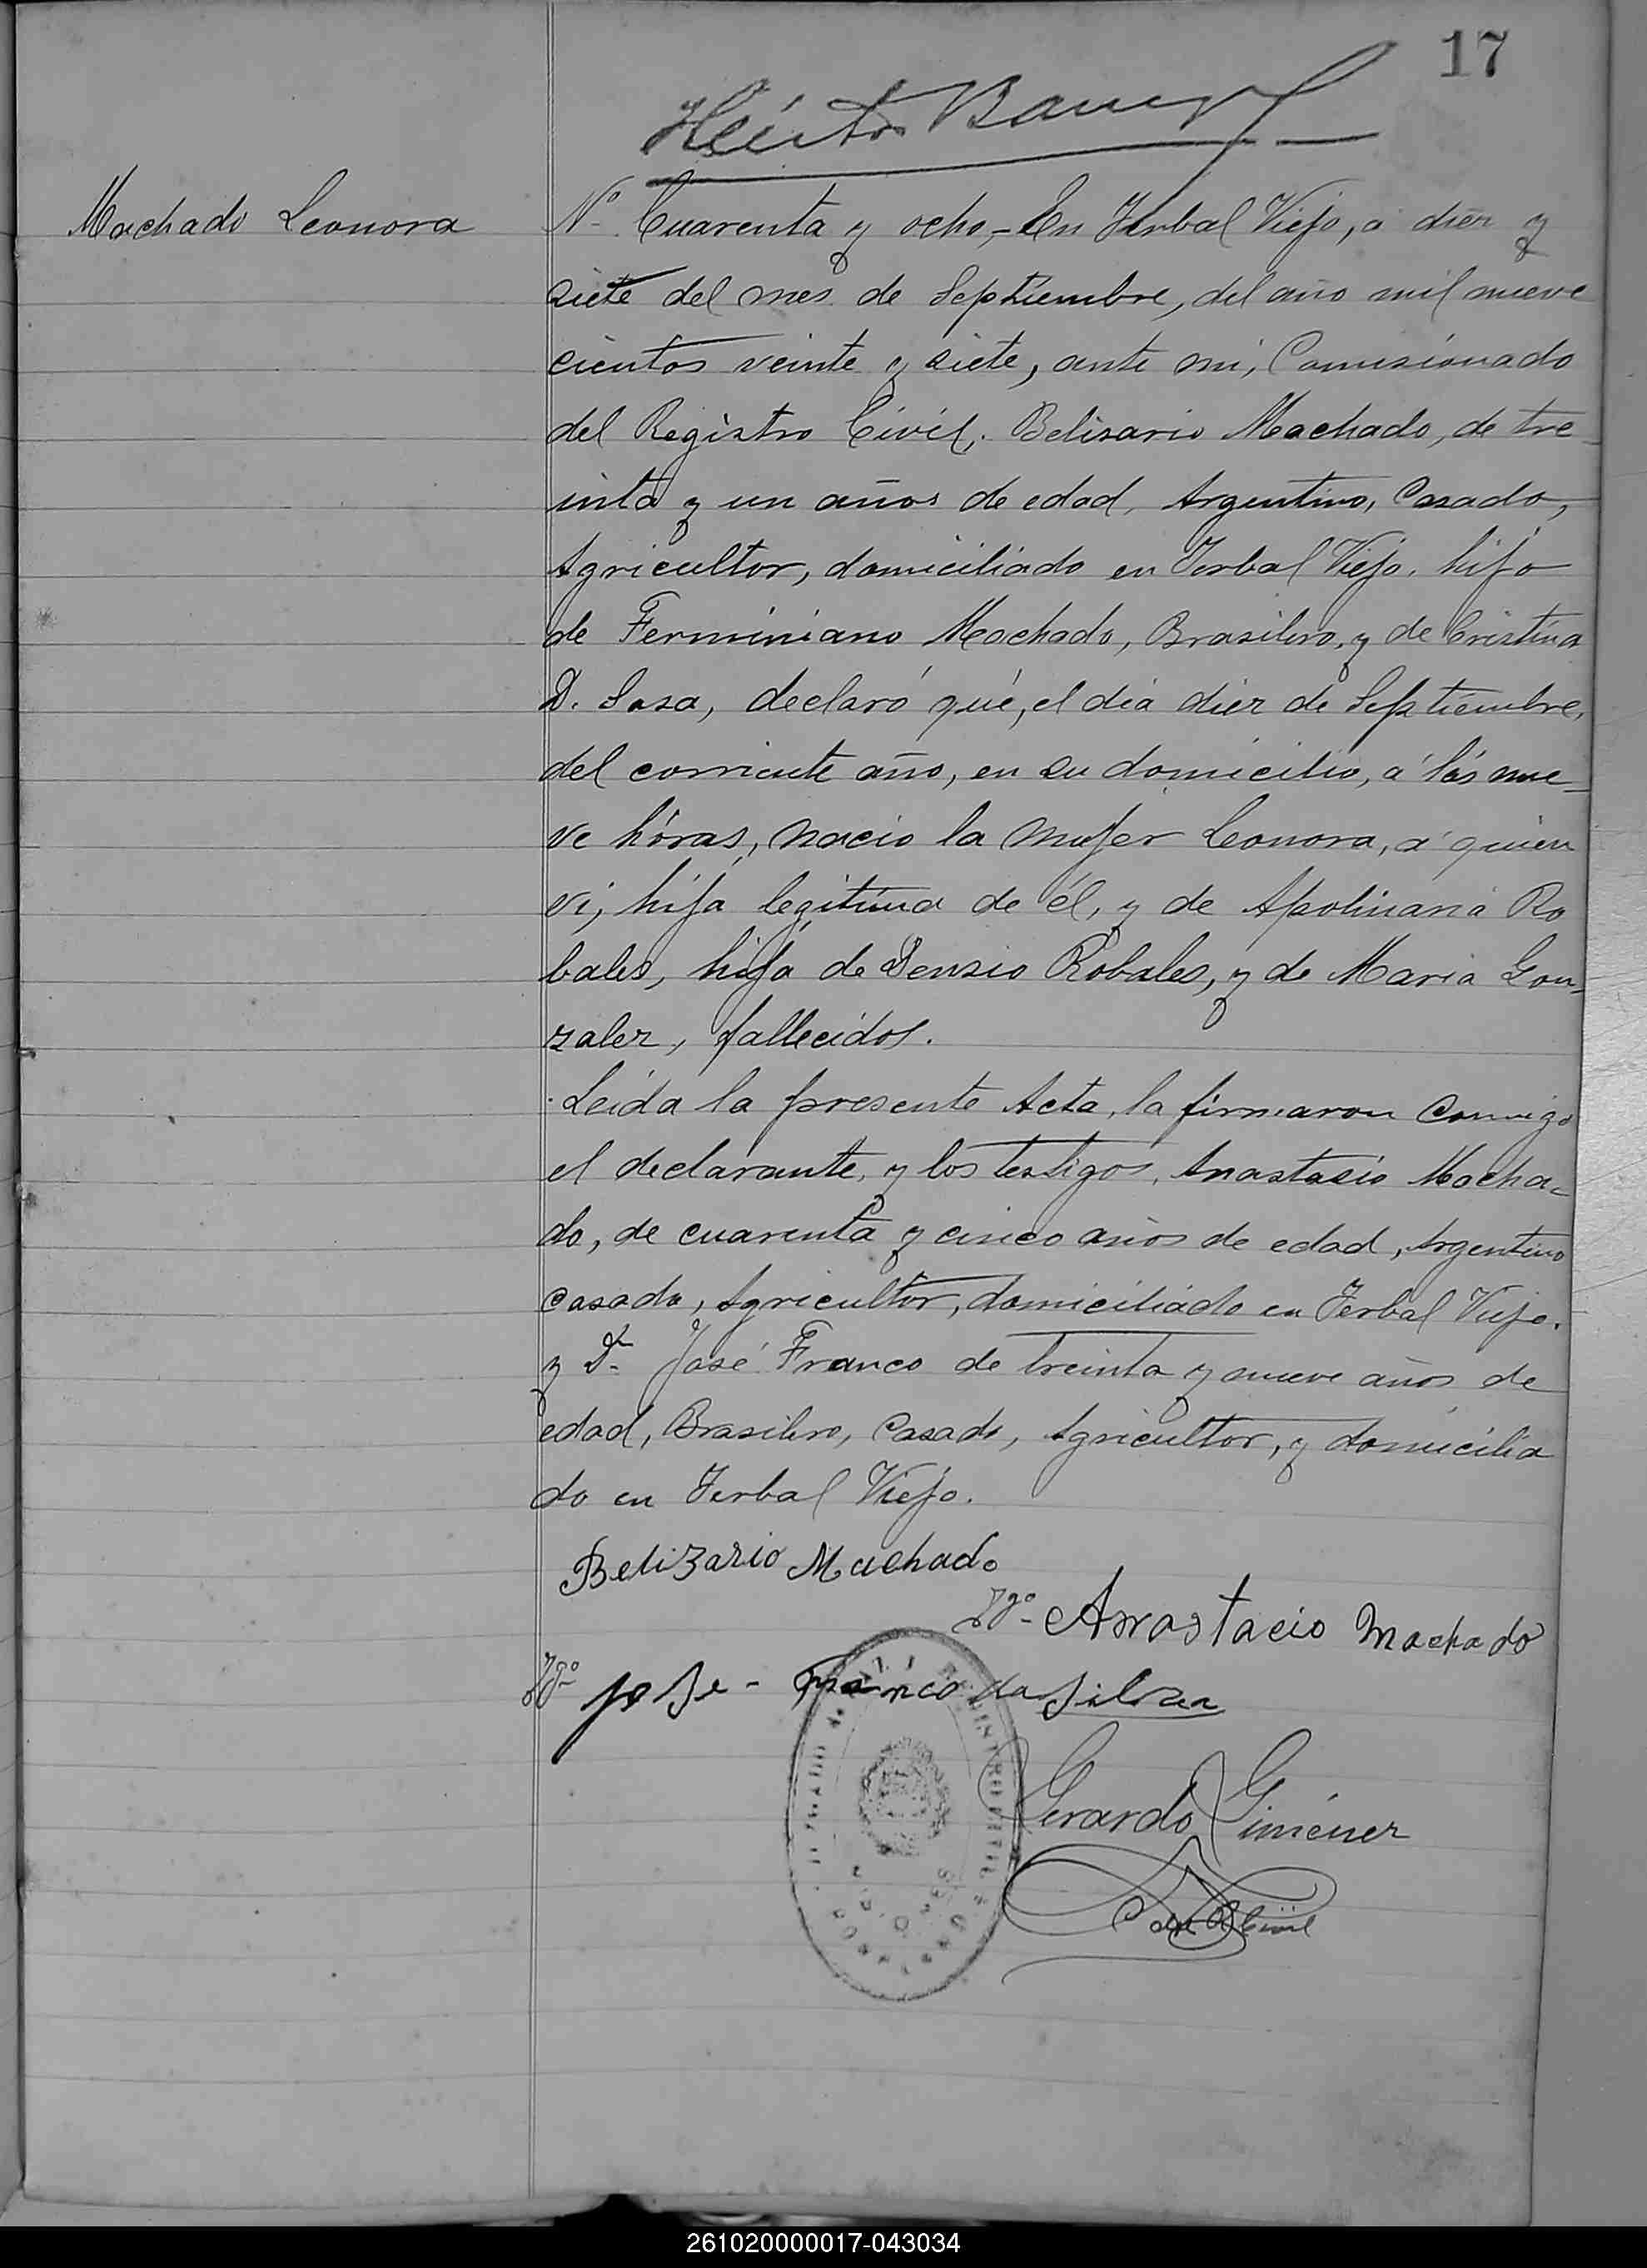 17
Héctor
Machado Leonora
Nº Cuarenta y ocho,- En Yerbal Viejo, á diez y
siete del mes de Septiembre, del año mil nueve
cientos veinte y siete, ante mi, Comisionado
del Registro Civil, Belisario Machado, de tre-
inta y un años de edad, Argentino, Casado,
Agricultor, domiciliado en Yerbal Viejo, hijo
de Ferminiano Machado, Brasilero, y de Cristina
D. Sosa, declaró qué, el día diez de Septiembre,
del corriente año, en su domicilio, á lás nue-
ve hóras, nacio la mujer Leonora, á quien
ví, hija legitíma de él, y de Apolinaria Ro
bales, hija de Densio Robales, y de Maria Gon-
zalez, fallecidos.
Leída la presente Acta, la firmaron Conmigo
el declarante, y los testigos, Anastasio Macha-
do, de cuarenta y cinco años de edad, Argentino
Casado, Agricultor, domiciliado en Yerbal Viejo.
y Dn José Franco de treinta y nueve años de
edad, Brasilero, Casado, Agricultor, y domicilia
do en Yerbal Viejo.
Belizario Machado
Tgo Anastacio Machado
Tgo jose - Franco da silva
Gerardo Giménez
C del R Civil
261020000017-043034